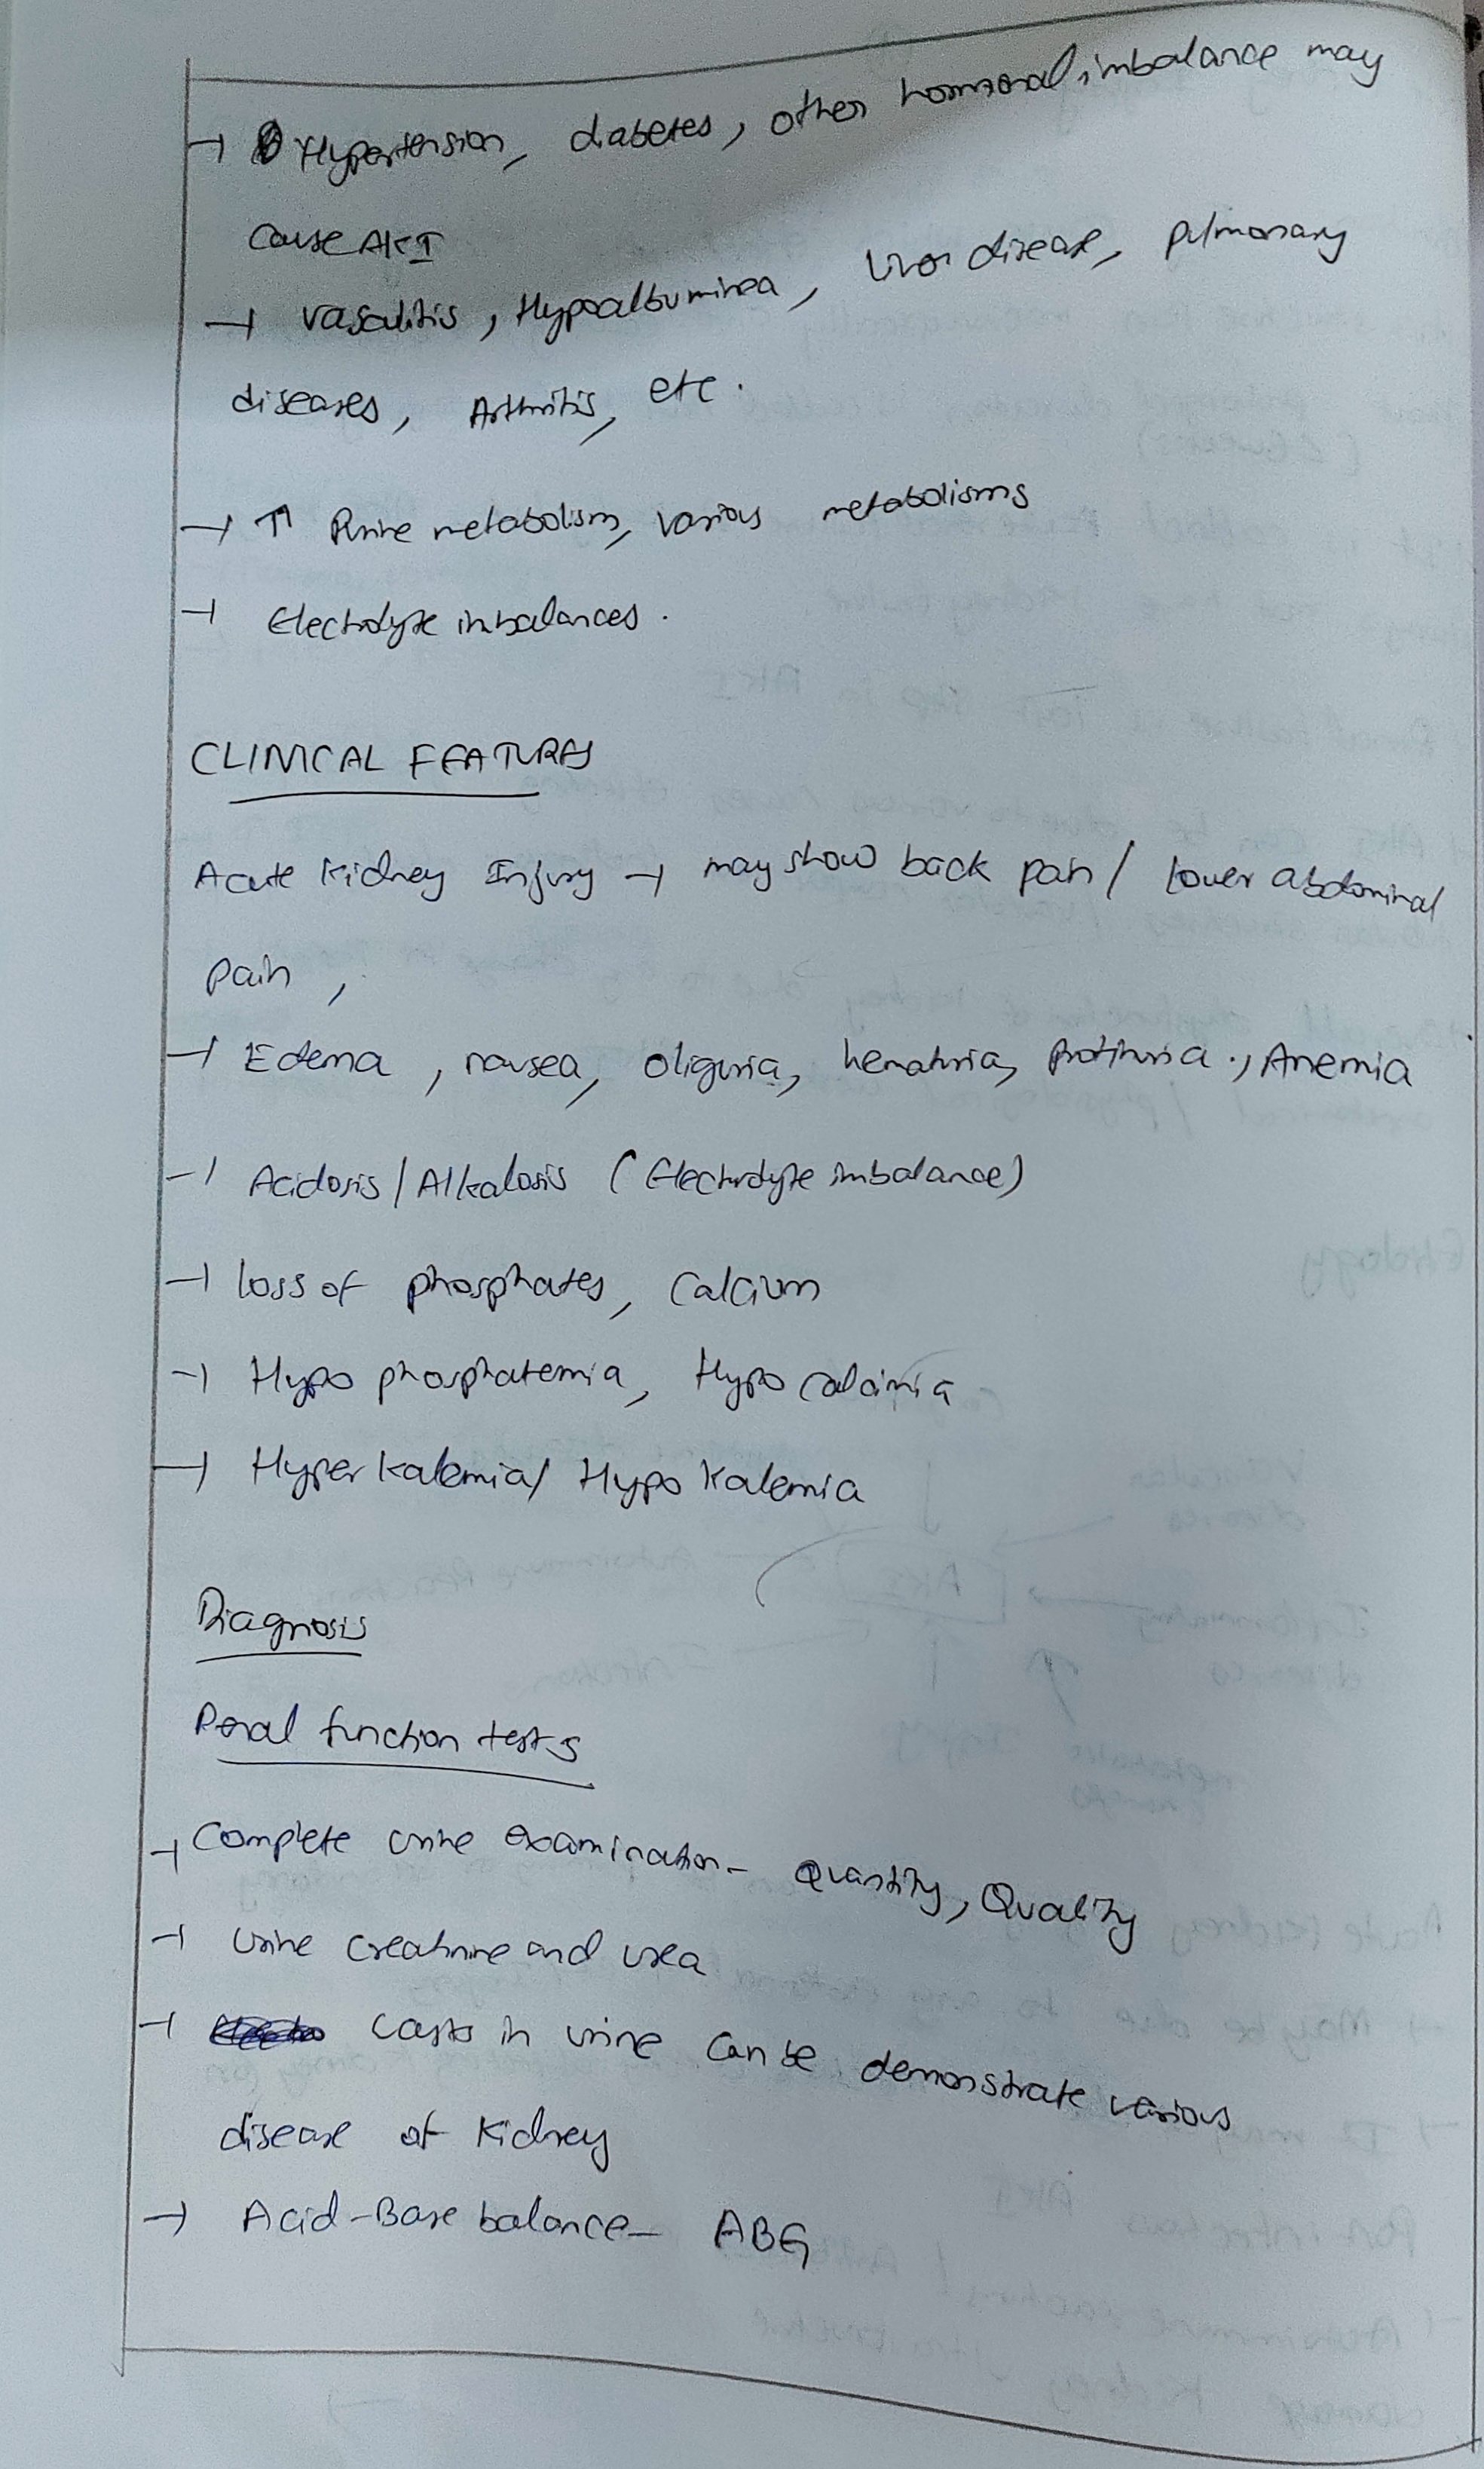 → Hypertension, diabetes, other hormonal imbalance may
cause AKI
→ vasculitis, Hypoalbuminea, Liver disease, pulmonary
diseases, Arthritis, etc.
→ ↑ Purine metabolism, various metabolisms
→ Electrolyte imbalances.
CLINICAL FEATURES
Acute Kidney Injury → may show back pain / lower abdominal
pain,
→ Edema, nausea, oliguria, hematuria, protinuria., Anemia
→ Acidosis/Alkalosis (Electrolyte imbalance)
→ loss of phosphates, Calcium
→ Hypo phosphatemia, Hypo calcimia
→ Hyper kalemia/ Hypo Kalemia
Diagnosis
Renal function tests
→ Complete urine examination - Quantity, Quality
→ Urine creatinine and urea
→ Casts in urine can be demonstrate various
disease of Kidney
→ Acid-Base balance - ABG